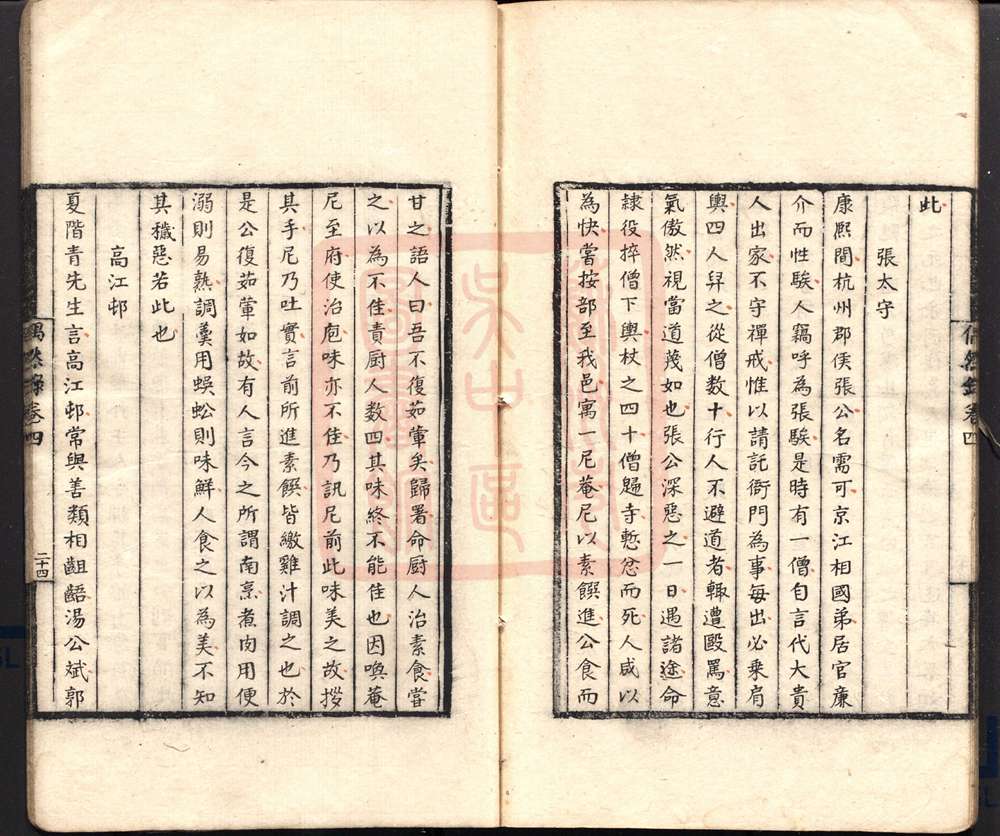 此
張太守
康熙間杭州郡侯張公名需可京江相國弟居官廉
介而性騃人竊呼為張騃是時有一僧自言代大貴
人出家不守禪戒惟以請託衙門為事每出必乘肩
輿四人舁之從僧數十行人不避道者輙遭毆罵意
氣傲然視當道蔑如也張公深惡之一日遇諸途命
隷役捽僧下輿杖之四十僧歸寺慙忿而死人咸以
為快嘗按部至我邑寓一尼菴尼以素饌進公食而
甘之語人曰吾不復茹葷矣歸署命厨人治素食嘗
之以為不佳責厨人數四其味終不能佳也因喚菴
尼至府使治庖味亦不佳乃訊尼前此味美之故拶
其手尼乃吐實言前所進素饌皆繳雞汁調之也於
是公復茹葷如故有人言今之所謂南烹煮肉用便
溺則易熟調羹用蜈蚣則味鮮人食之以為美不知
其穢惡若此也
高江邨
夏階青先生言高江邨常與善類相齟齬湯公斌郭
偶然錄卷四
二十四